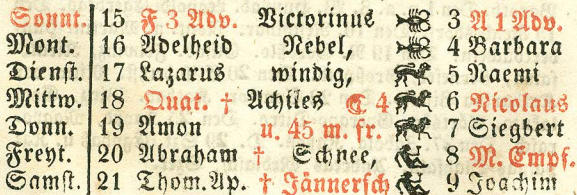 Sonnt. 15 F 3 Adv. Victorinus 3 A 1 Adv.
Mont. 16 Adelheid Nebel, 4 Barbara
Dienst. 17 Lazarus windig, 5 Naemi
Mittw. 18 Quat. † Achiles C 4 6 Nicolaus
Donn. 19 Amon u. 45 m. fr. 7 Siegbert
Freyt. 20 Abraham † Schnee, 8 M. Empf.
Samst. 21 Thom. Ap. † Jännersch 9 Joachim